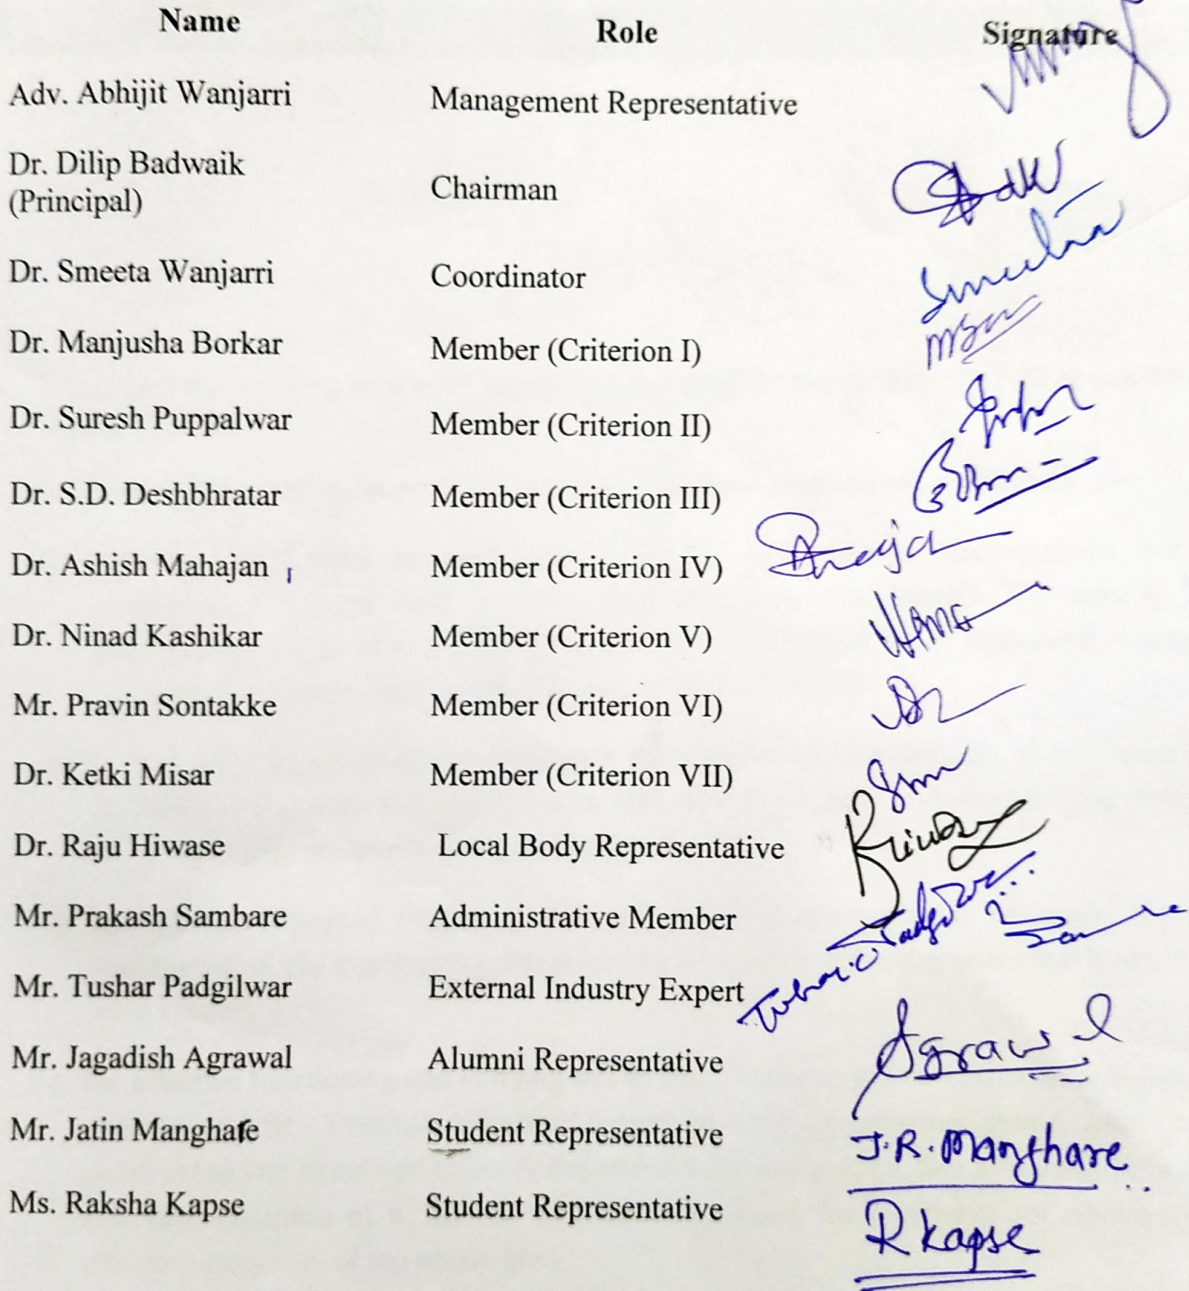 Name Role Signature
Adv. Abhijit Wanjarri Management Representative
Dr. Dilip Badwaik
(Principal) Chairman
Dr. Smeeta Wanjarri Coordinator Smeeta
Dr. Manjusha Borkar Member (Criterion I)
Dr. Suresh Puppalwar Member (Criterion II)
Dr. S.D. Deshbhratar Member (Criterion III)
Dr. Ashish Mahajan Member (Criterion IV)
Dr. Ninad Kashikar Member (Criterion V)
Mr. Pravin Sontakke Member (Criterion VI)
Dr. Ketki Misar Member (Criterion VII)
Dr. Raju Hiwase Local Body Representative
Mr. Prakash Sambare Administrative Member
Mr. Tushar Padgilwar External Industry Expert
Mr. Jagadish Agrawal Alumni Representative Agrawal
Mr. Jatin Manghare Student Representative J.R. Manghare
Ms. Raksha Kapse Student Representative R kapse